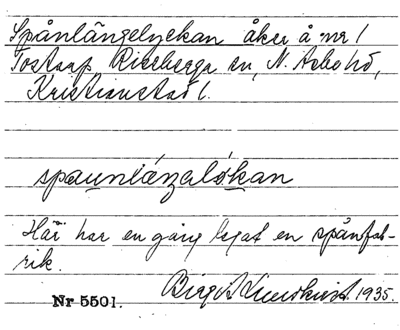 Spånlängelyckan åker å nr 1
Tostarp Riseberga sn, N. Åsbo hd,
Kristianstad l.
spaunlánzalókan
Här har en gång legat en spånfab-
rik.
Birgit Lundkvist 1935.
Nr 5501.